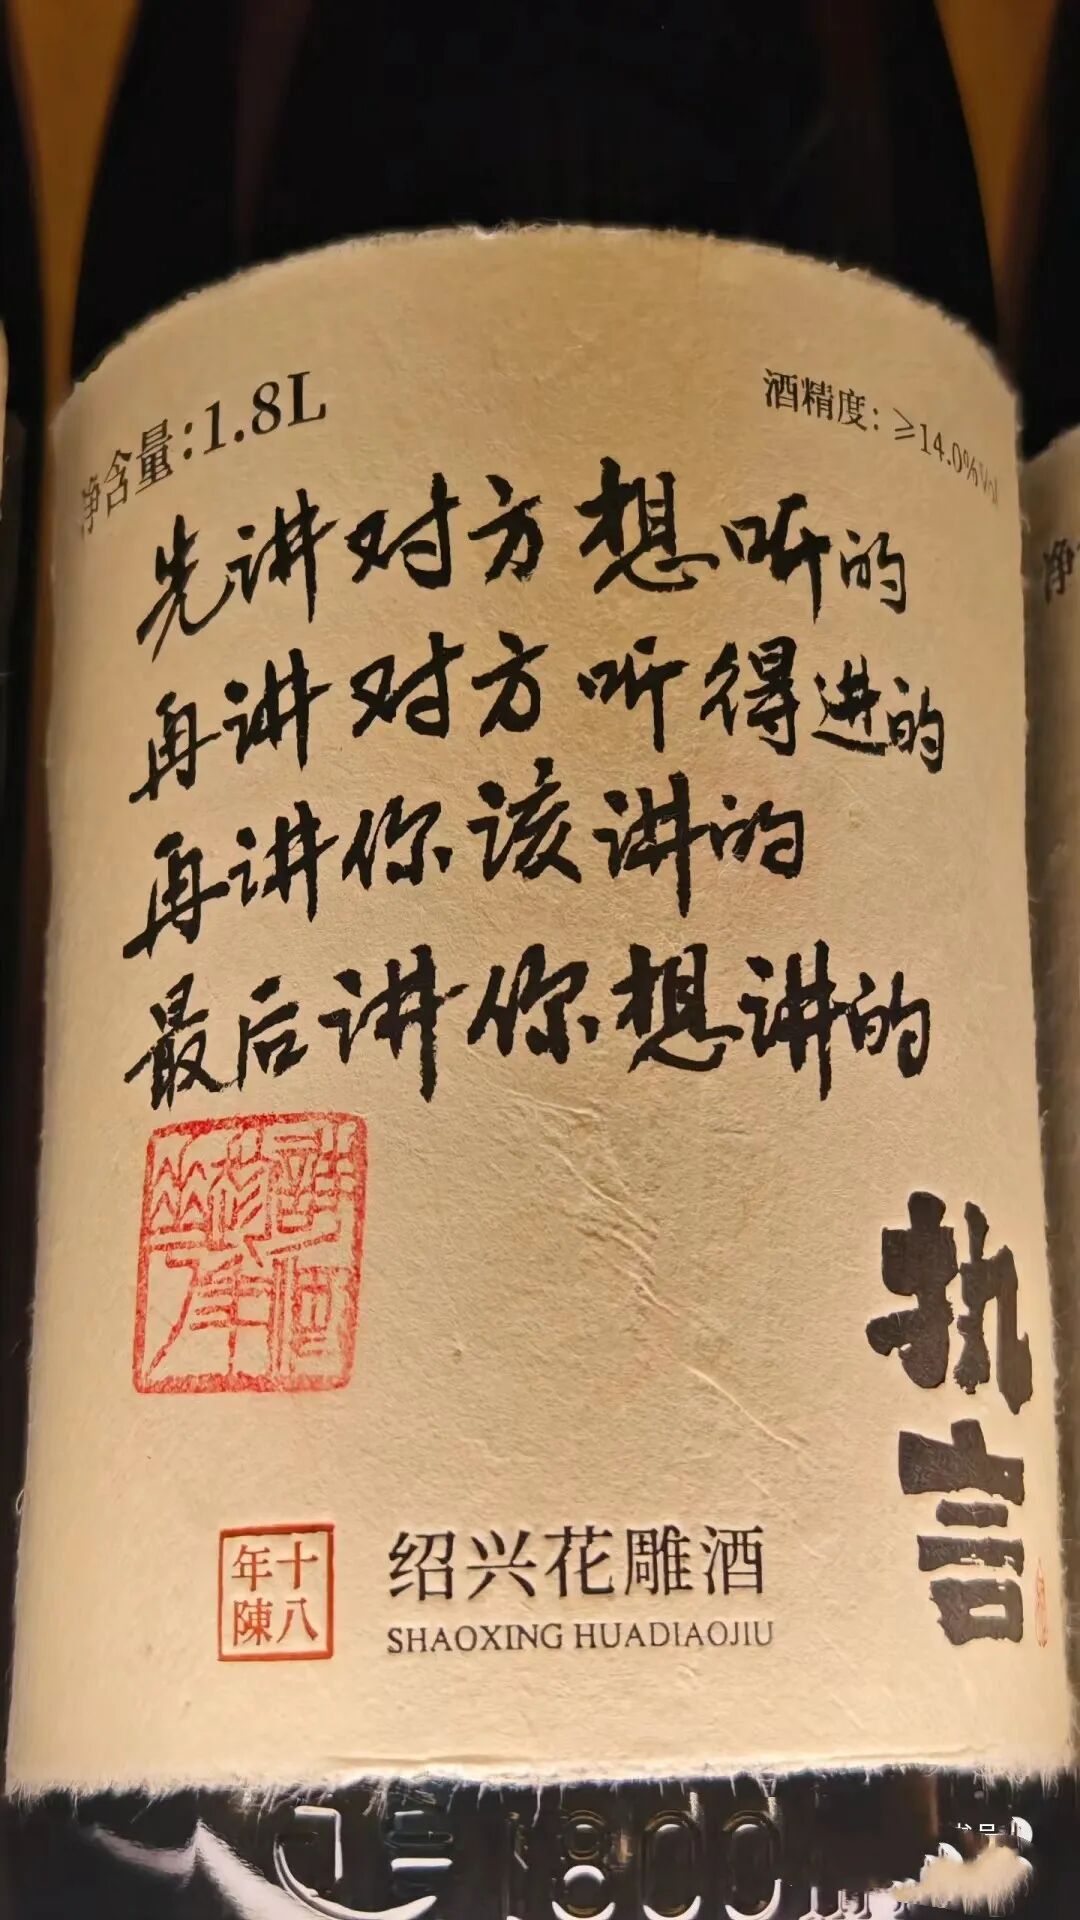 净含量:1.8L
酒精度:≥14.0%Vol
先讲对方想听的
再讲对方听得进的
再讲你该讲的
最后讲你想讲的
执言
十八
年陳
绍兴花雕酒
SHAOXING HUADIAOJIU
1800